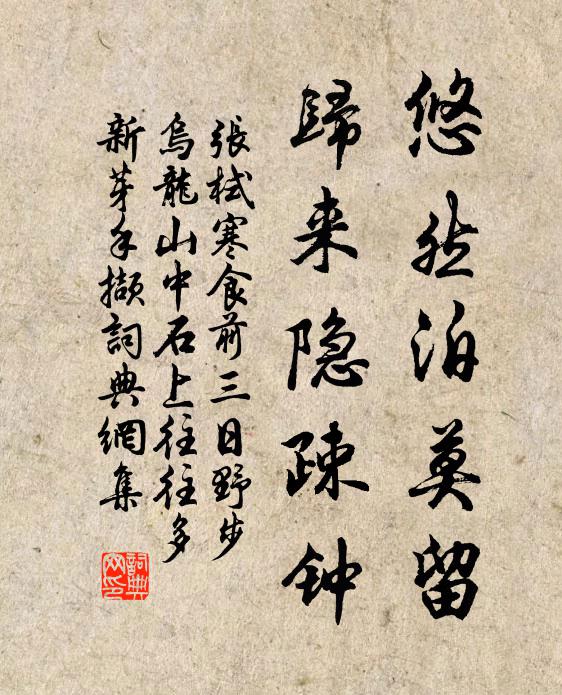 悠然泊莫留
歸来隐疎钟
張栻寒食前三日野步
烏龍山中石上往往多
新芽手擷詞典網集
詞典
网印